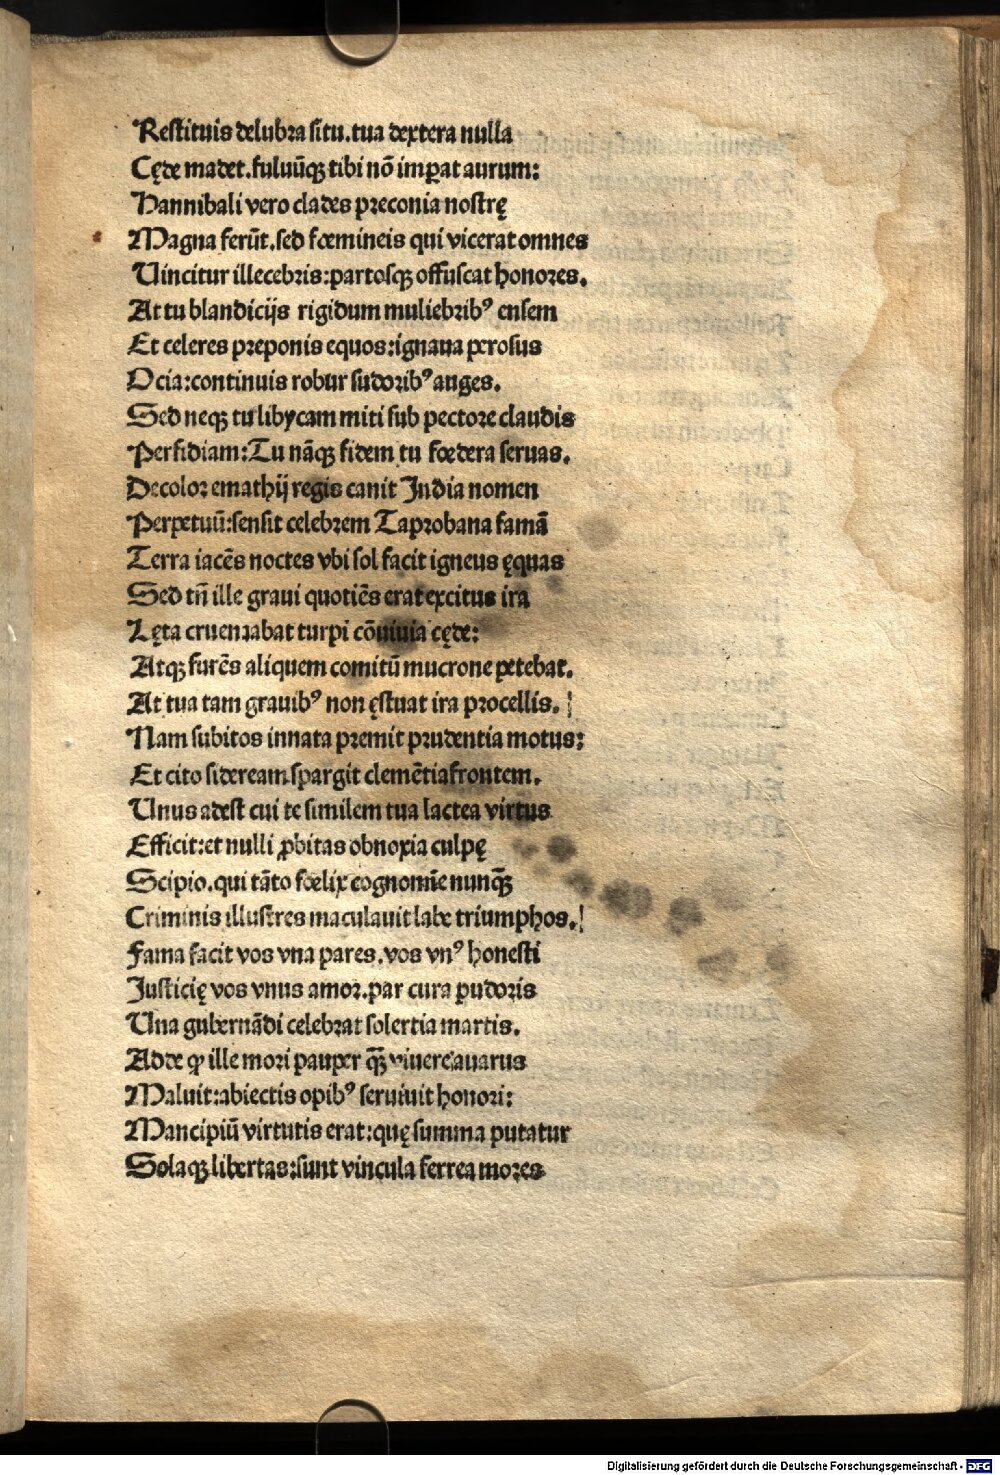 Restituis delubra situ.tua dextera nulla
Cęde madet.fuluūqꝫ tibi nō imꝑat aurum:
Hannibali vero clades preconia nostrę
Magna ferūt.sed fœmineis qui vicerat omnes
Vincitur illecebris:partosqꝫ offuscat honores.
At tu blandicijs rigidum muliebribꝰ ensem
Et celeres preponis equos:ignaua perosus
Ocia:continuis robur sudoribꝰ auges.
Sed neqꝫ tu libycam miti sub pectore claudis
Perfidiam:Tu nāqꝫ fidem tu fœdera seruas.
Decolor emathij regis canit India nomen
Perpetuū:sensit celebrem Taprobana famā
Terra iacēs noctes vbi sol facit igneus ęquas
Sed tn̄ ille graui quotiēs erat excitus ira
Lęta cruentabat turpi cōuiuia cęde:
Atqꝫ furēs aliquem comitū mucrone petebat.
At tua tam grauibꝰ non ęstuat ira procellis.
Nam subitos innata premit prudentia motus:
Et cito sideream spargit clemētia frontem.
Unus adest cui te similem tua lactea virtus
Efficit:et nulli ꝓbitas obnoxia culpę
Scipio.qui tāto fœlix cognomīe nunqꝫ̄
Criminis illustres maculauit labe triumphos.
Fama facit vos vna pares.vos vnꝰ honesti
Justicię vos vnus amor.par cura pudoris
Una gubernādi celebrat solertia martis.
Adde ꝙ ille mori pauper qꝫ̄ viuere auarus
Maluit:abiectis opibꝰ seruiuit honori:
Mancipiū virtutis erat:quę summa putatur
Solaqꝫ libertas:sunt vincula ferrea mores
Digitalisierung gefördert durch die Deutsche Forschungsgemeinschaft - DFG